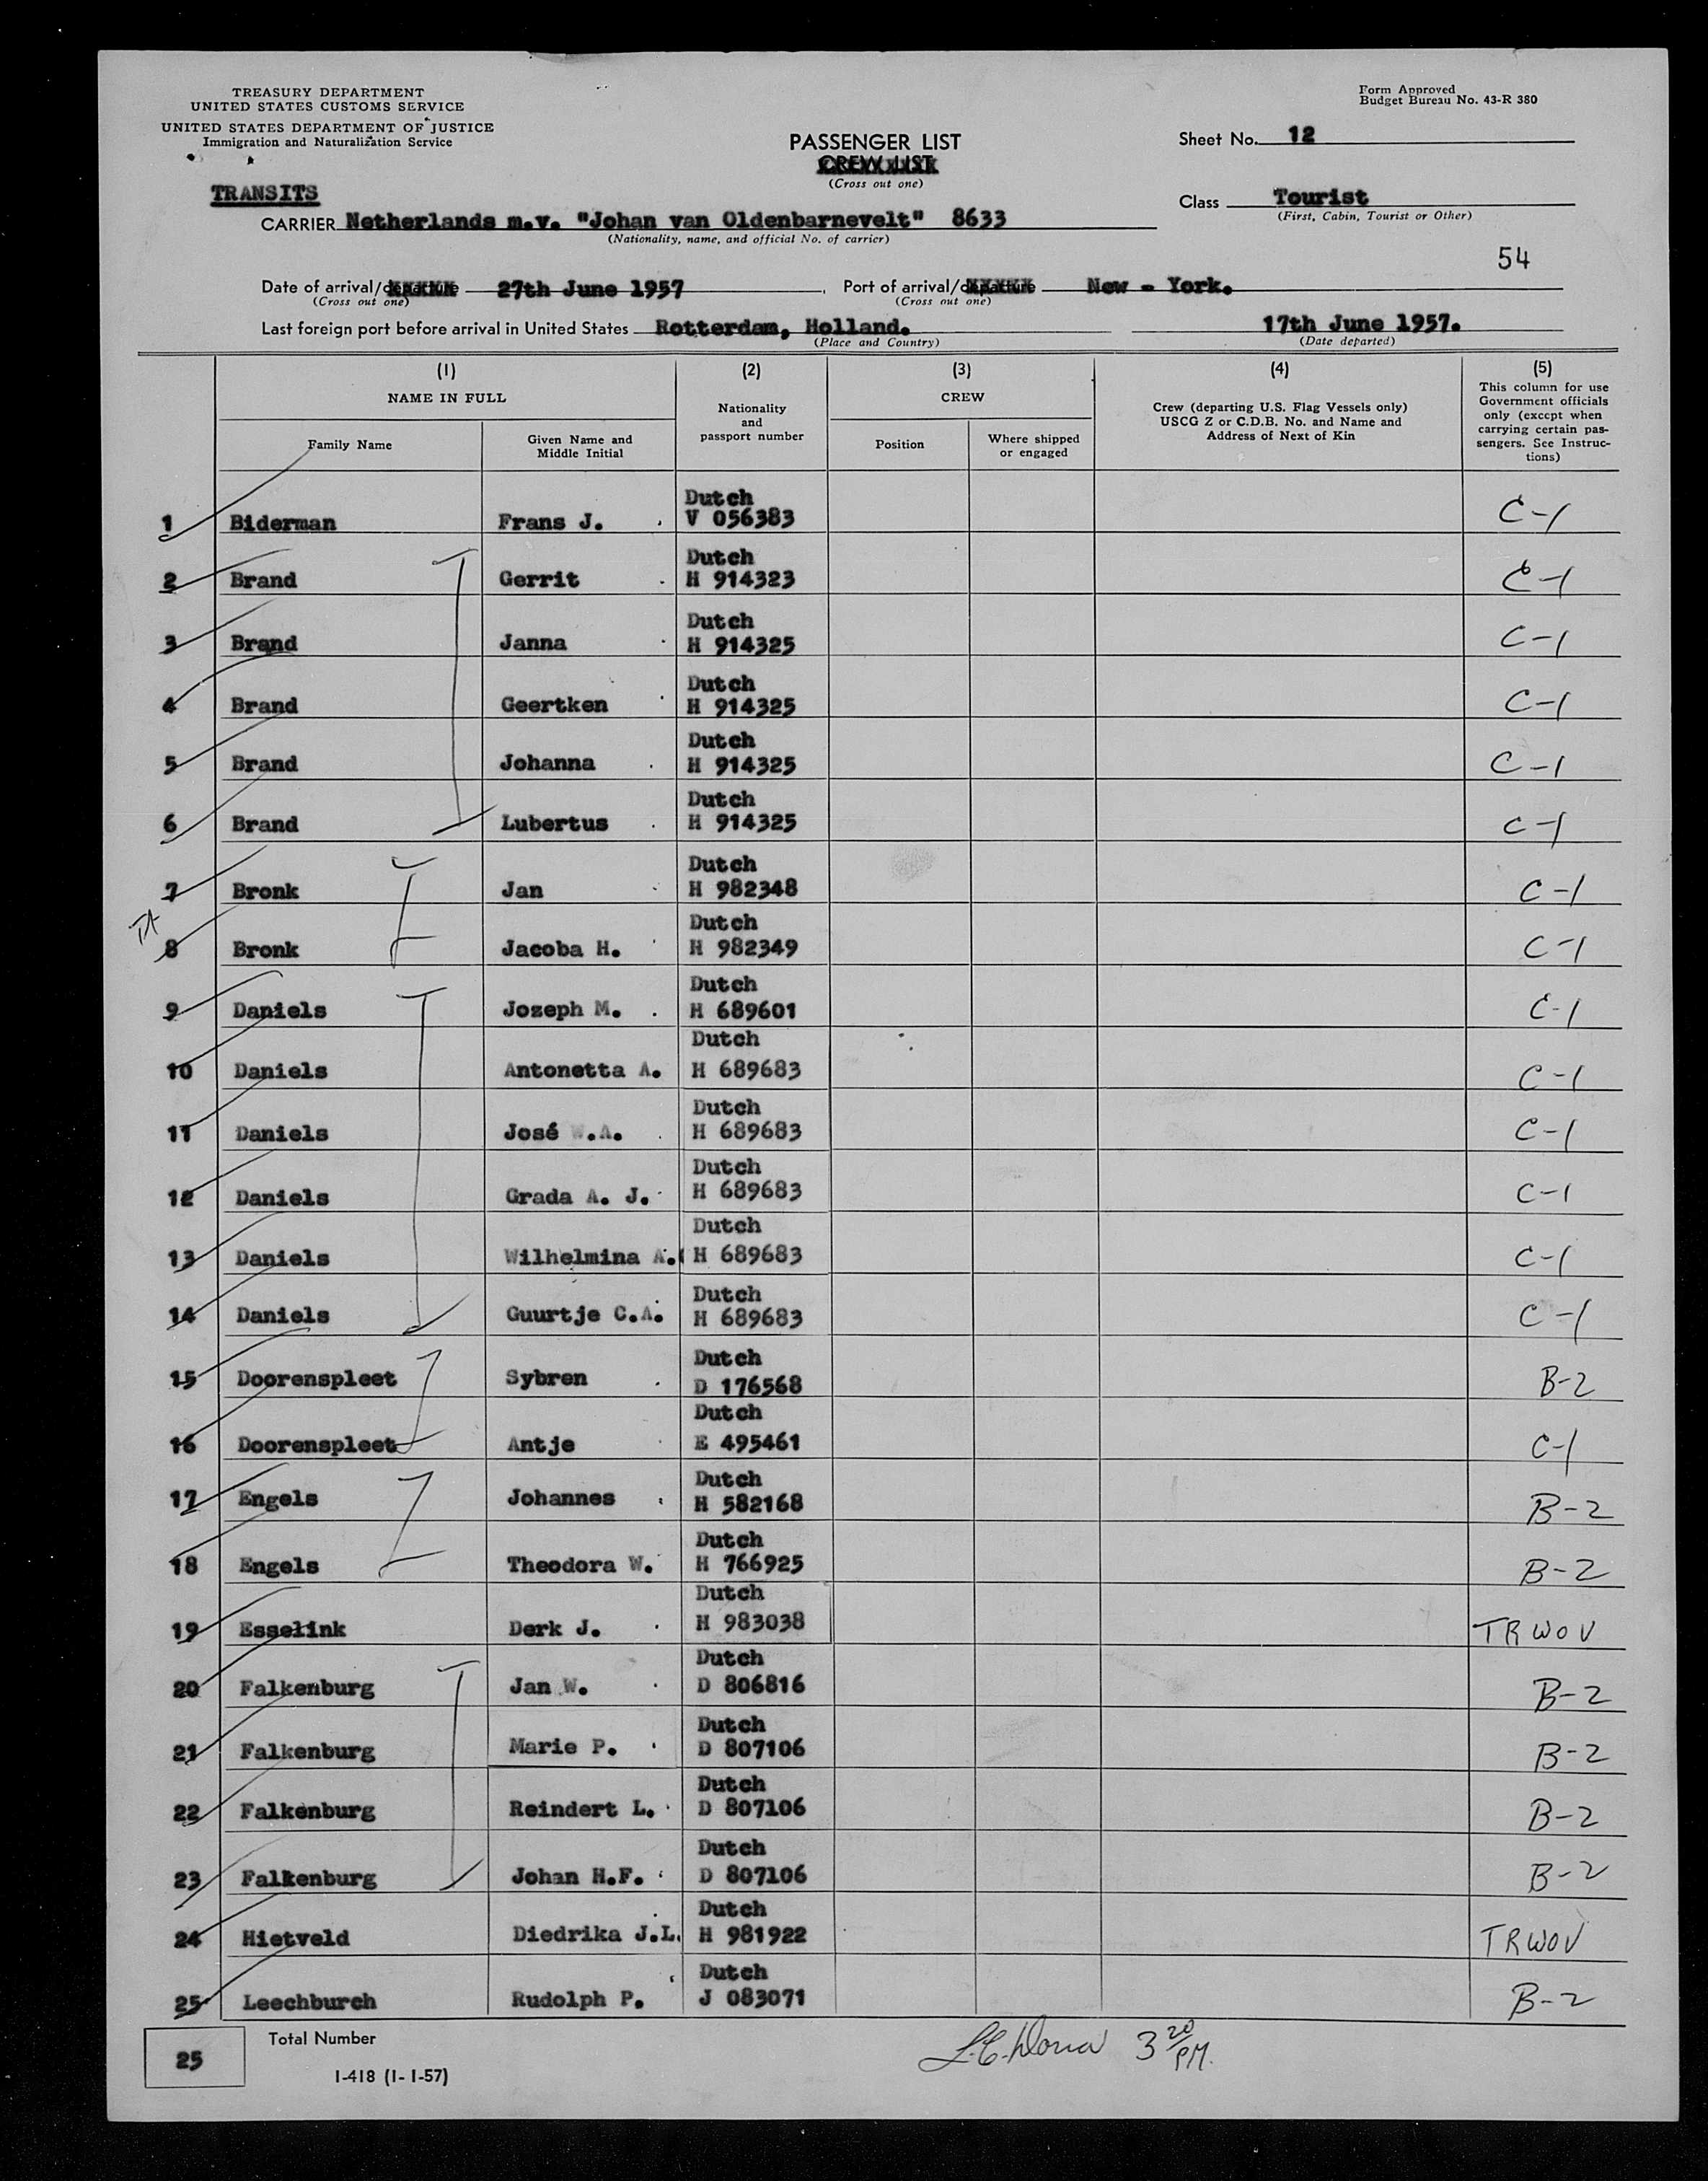 TREASURY DEPARTMENT
UNITED STATES CUSTOMS SERVICE
UNITED STATES DEPARTMENT OF JUSTICE
Immigration and Naturalization Service
Form Approved
Budget Bureau No. 43-R 380
PASSENGER LIST
CREW LIST
(Cross out one)
Sheet No. 12
TRANSITS
Class Tourist
(First, Cabin, Tourist or Other)
CARRIER Netherlands m.v. "Johan van Oldenbarnevelt" 8633
(Nationality, name, and official No. of carrier)
54
Date of arrival/departure 27th June 1957, Port of arrival/departure New - York.
(Cross out one) (Cross out one)
Last foreign port before arrival in United States Rotterdam, Holland. 17th June 1957.
(Place and Country) (Date departed)
(1) (2) (3) (4) (5)
NAME IN FULL
Family Name
Given Name and Middle Initial
Nationality and passport number
CREW
Position
Where shipped or engaged
Crew (departing U.S. Flag Vessels only)
USCG Z or C.D.B. No. and Name and
Address of Next of Kin
This column for use
Government officials
only (except when
carrying certain pas-
sengers. See Instruc-
tions)
1 Biderman Frans J. Dutch V 056383 C-1
2 Brand Gerrit Dutch H 914323 C-1
3 Brand Janna Dutch H 914325 C-1
4 Brand Geertken Dutch H 914325 C-1
5 Brand Johanna Dutch H 914325 C-1
6 Brand Lubertus Dutch H 914325 C-1
7 Bronk Jan Dutch H 982348 C-1
8 Bronk Jacoba H. Dutch H 982349 C-1
9 Daniels Jozeph M. Dutch H 689601 C-1
10 Daniels Antonetta A. Dutch H 689683 C-1
11 Daniels José W.A. Dutch H 689683 C-1
12 Daniels Grada A. J. Dutch H 689683 C-1
13 Daniels Wilhelmina A. Dutch H 689683 C-1
14 Daniels Guurtje C.A. Dutch H 689683 C-1
15 Doorenspleet Sybren Dutch D 176568 B-2
16 Doorenspleet Antje Dutch E 495461 C-1
17 Engels Johannes Dutch H 582168 B-2
18 Engels Theodora W. Dutch H 766925 B-2
19 Esselink Derk J. Dutch H 983038 TRWOV
20 Falkenburg Jan W. Dutch D 806816 B-2
21 Falkenburg Marie P. Dutch D 807106 B-2
22 Falkenburg Reindert L. Dutch D 807106 B-2
23 Falkenburg Johan H.F. Dutch D 807106 B-2
24 Hietveld Diedrika J.L. Dutch H 981922 TRWOV
25 Leechburch Rudolph P. Dutch J 083071 B-2
25 Total Number
3 20 PM.
I-418 (1-1-57)